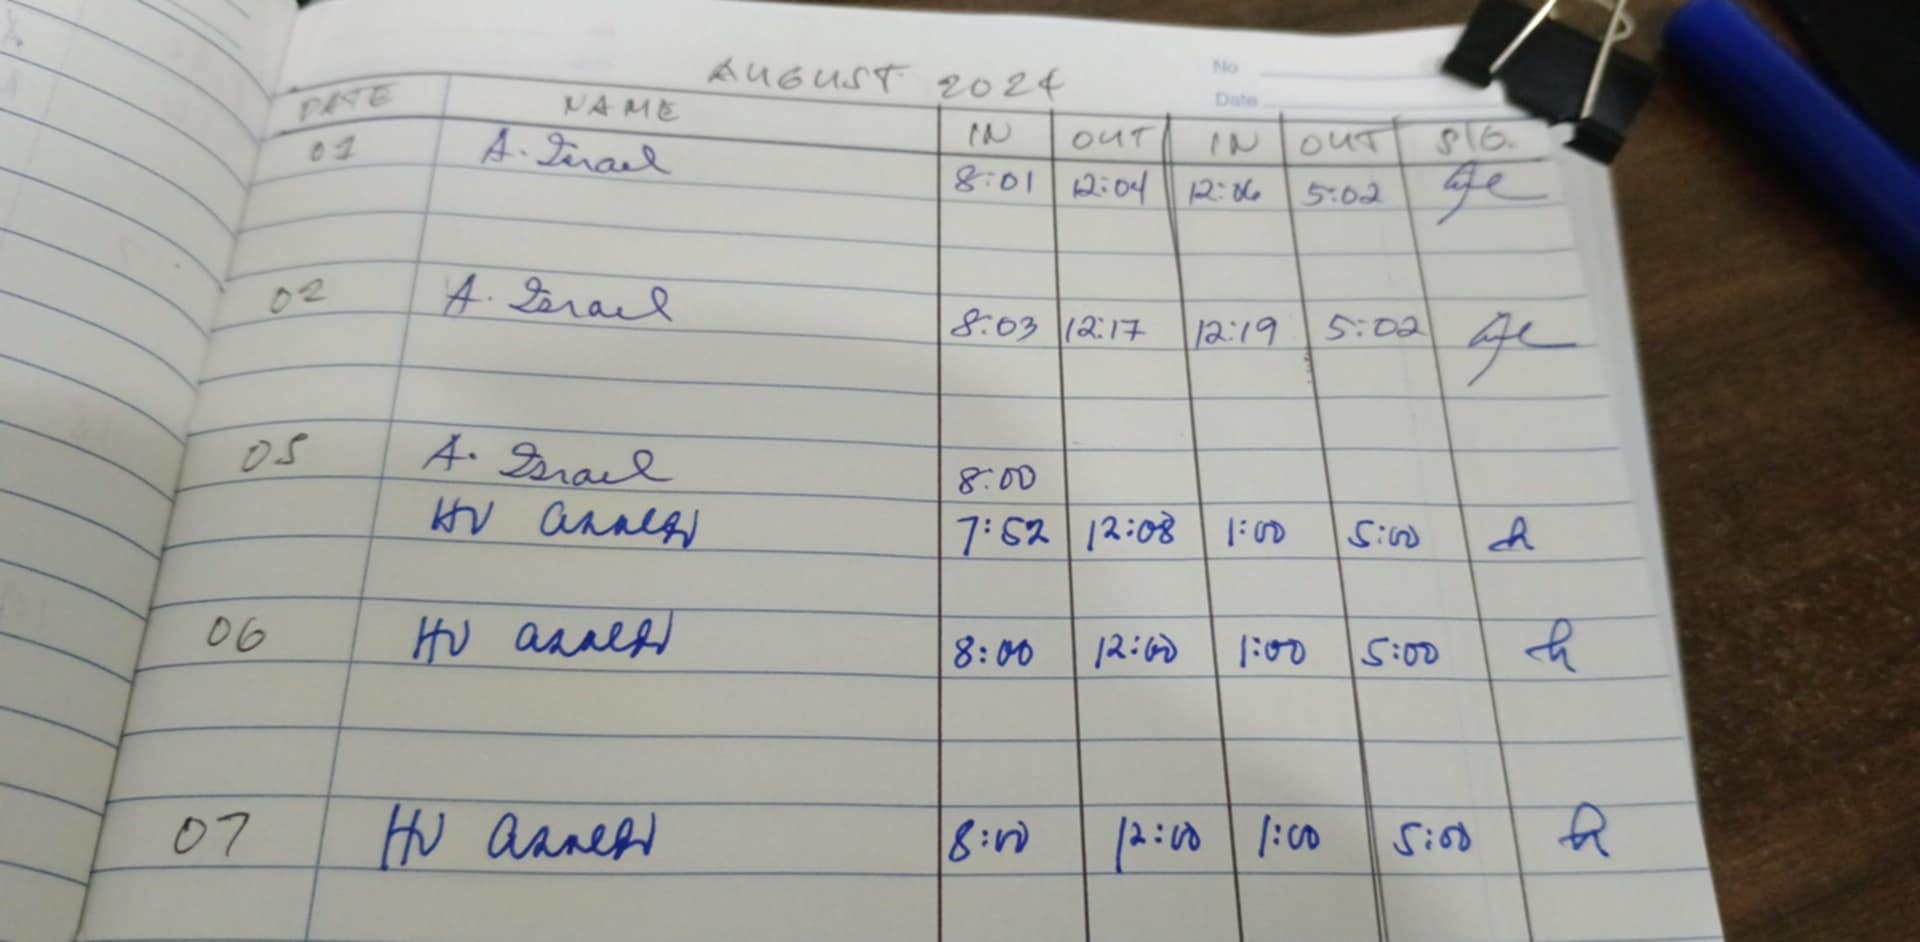 AUGUST 2024
No
Date
DATE NAME IN OUT IN OUT SIG.
01 A. Israel 8:01 12:04 12:06 5:02
02 A. Israel 8:03 12:17 12:19 5:02
05 A. Israel 8:00
HV 7:52 12:08 1:00 5:00
06 HV 8:00 12:00 1:00 5:00
07 HV 8:00 12:00 1:00 5:00